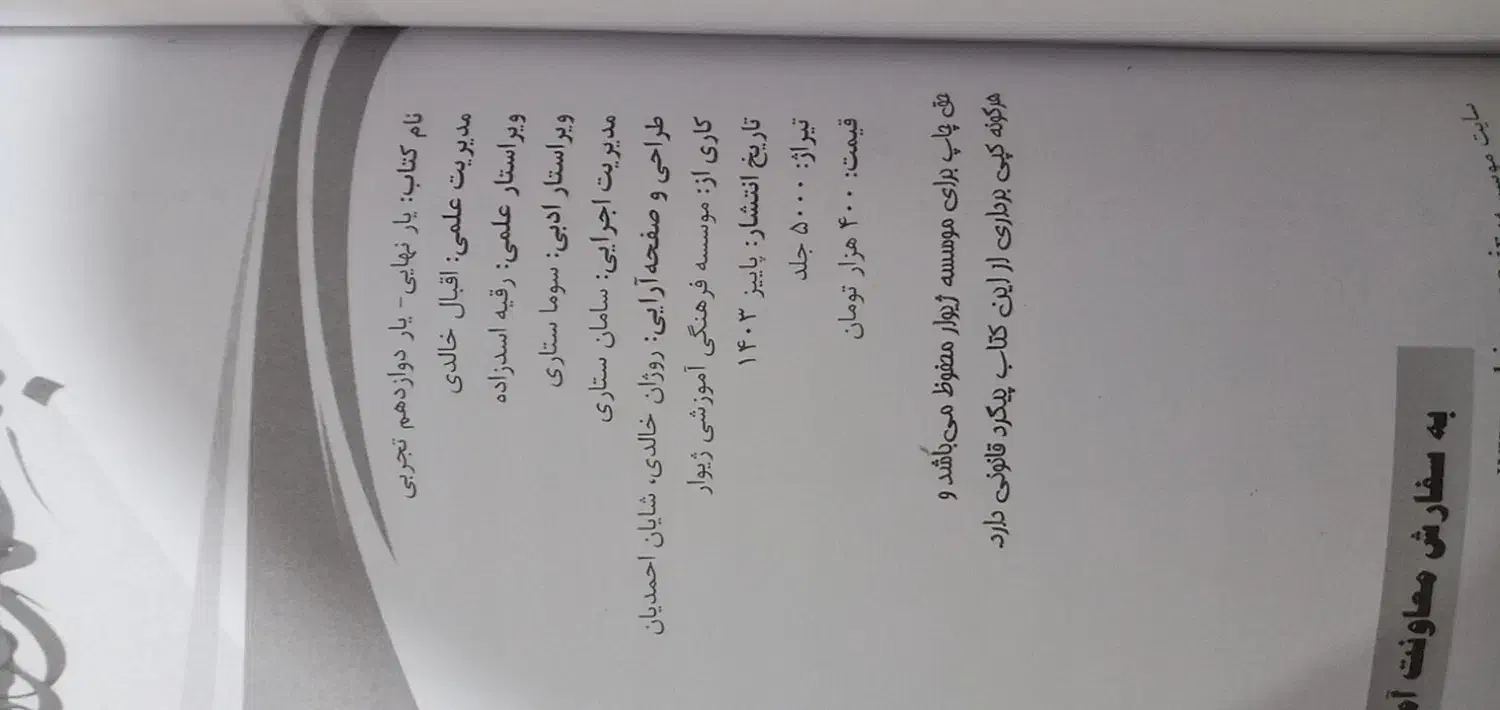 نام کتاب: یار نهایی- یار دوازدهم تجربی
مدیریت علمی: اقبال خالدی
ویراستار علمی: رقیه اسدزاده
ویراستار ادبی: سوما ستاری
مدیریت اجرایی: سامان ستاری
طراحی و صفحه‌آرایی: روژان خالدی، شایان احمدیان
کاری از: موسسه فرهنگی آموزشی ژیوار
تاریخ انتشار: پاییز ۱۴۰۳
تیراژ: ۵۰۰۰ جلد
قیمت: ۴۰۰ هزار تومان
حق چاپ برای موسسه ژیوار محفوظ می‌باشد و
هرگونه کپی برداری از این کتاب پیگرد قانونی دارد.
به سفارش معاونت
سایت